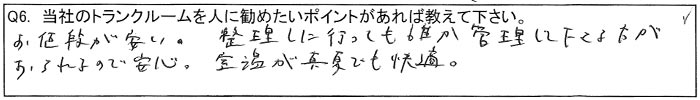 Q6. 当社のトランクルームを人に勧めたいポイントがあれば教えて下さい。
お値段が安い。 整理しに行っても誰か管理して下さる方が
おられるので安心。 室温が真夏でも快適。